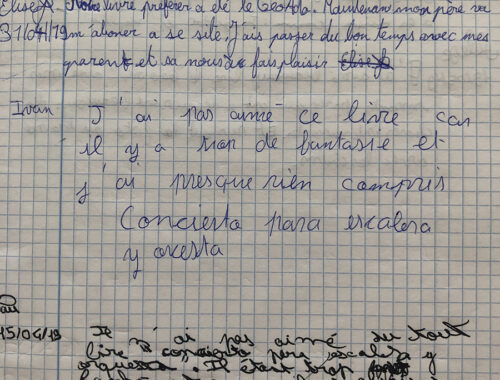 Elise A. livre préferer a été le GeoAdo. Maintenant mon père va
31/04/19 m'aboner a se site. J'ais passer du bon temps avec mes
parent et sa nous a fais plaisir
Ivan J'ai pas aimé ce livre car
il y a trop de fantasie et
j'ai presque rien compris
Concierto para escalera
y orcesta
15/04/19 Je n'ai pas aimé du tout
lire concierto para escalera y
orquesta. Il était trop